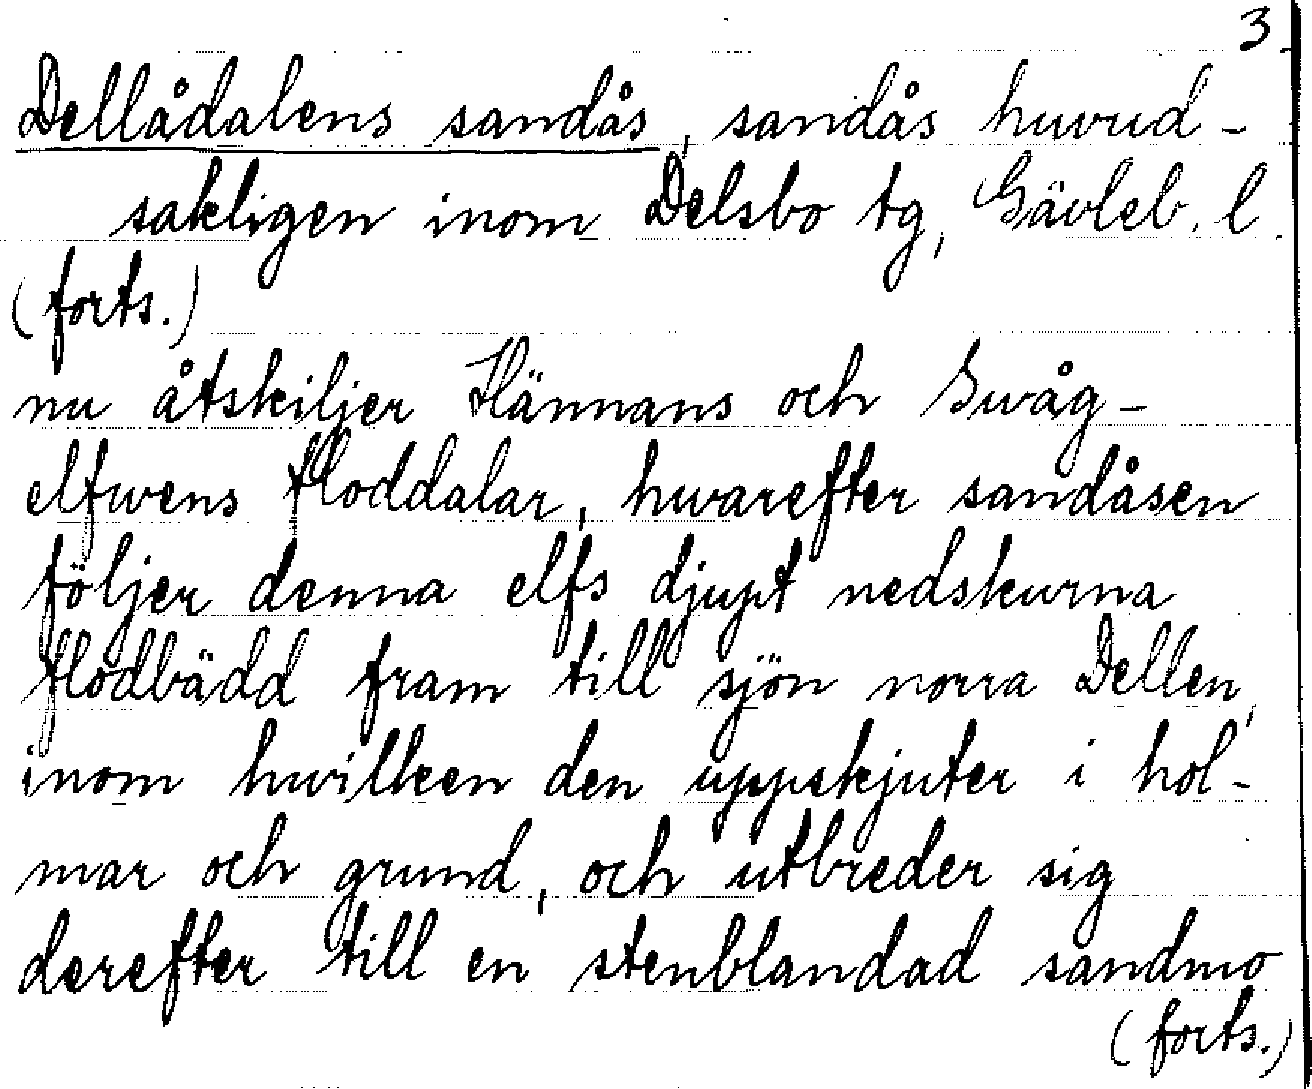 3.
Dellådalens sandås, sandås huvud-
sakligen inom Delsbo tg, Gävleb. l.
(forts.)
nu åtskiljer Hännans och Swåg-
elfwens floddalar, hwarefter sandåsen
följer denna elfs djupt nedskurna
flodbädd fram till sjön norra Dellen,
inom hwilken den uppskjuter i hol-
mar och grund, och utbreder sig
derefter till en stenblandad sandmo
(forts.)